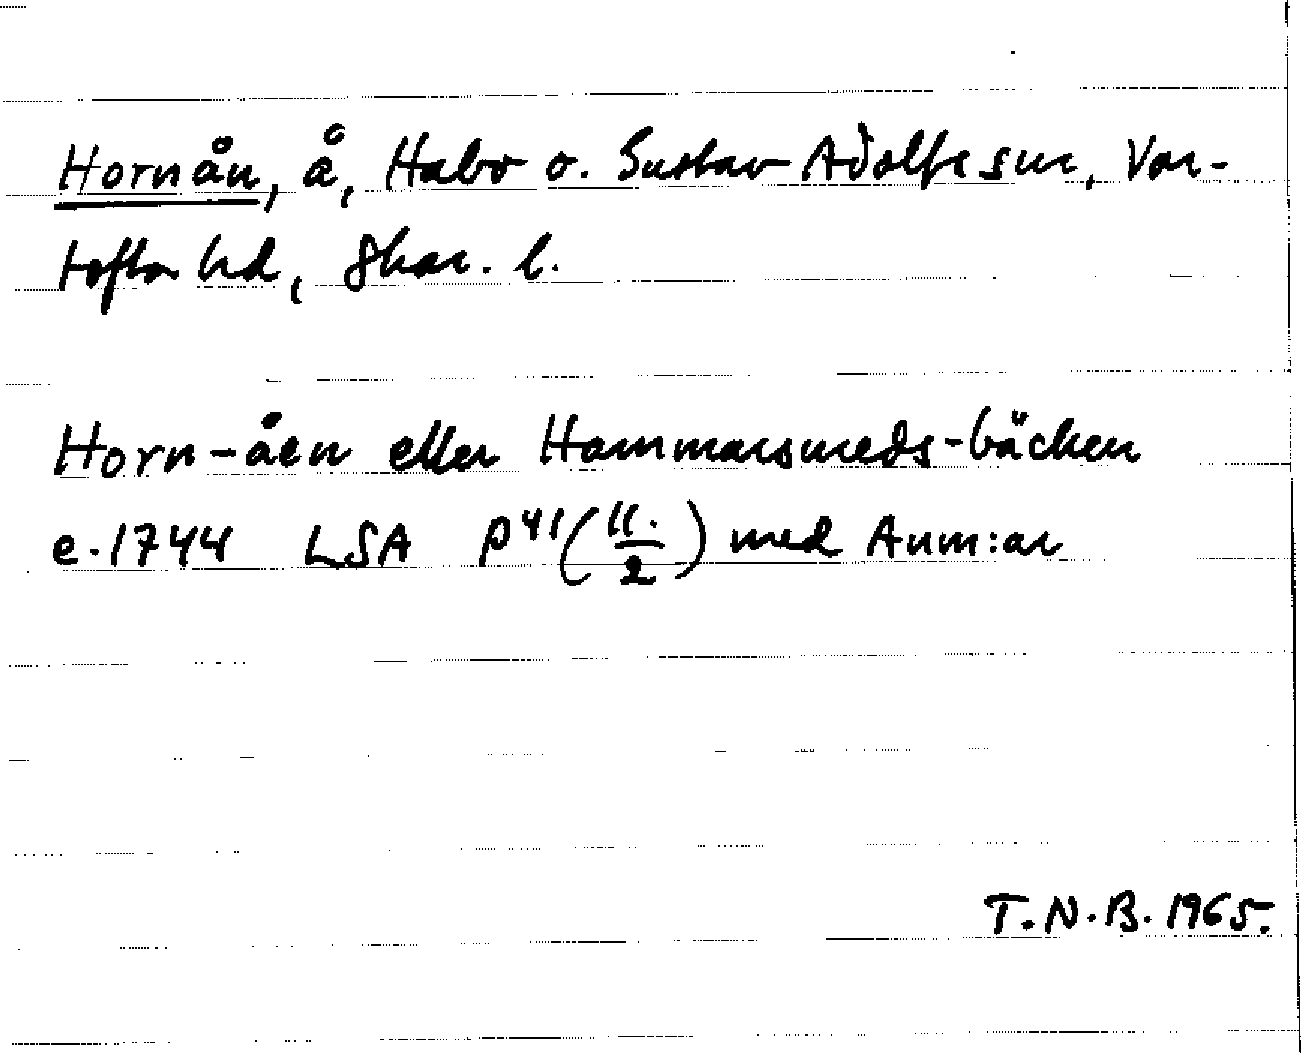 Hornån, å, Habo o. Gustav Adolfs snr, Var-
tofta hd, Skar. l.
Horn-åen eller Hammarsmeds-bäcken
e. 1744 LSA P41 (11./2) med Anm:ar
T.N.B. 1965.